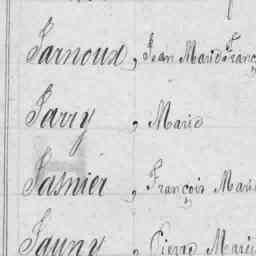 Jarnoux, Jean Marie Franç
Jarry, Marie
Jasnier, François Marie
Jauny, Pierre Marie